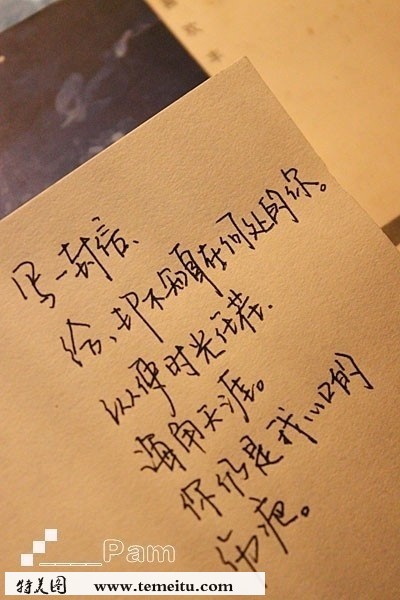 写一封信、
给、却不知身在何处的你。
纵使时光荏苒、
海角天涯。
你仍是我心口的
伤疤。
____Pam
特美图 www.temeitu.com